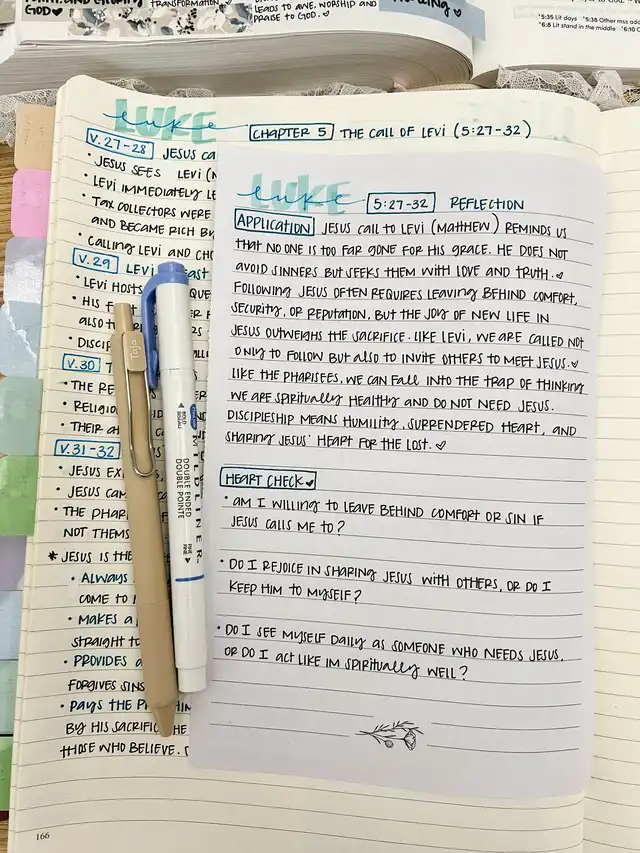 GOD♥
TRANSFORMATION.
LEADS TO AWE, WORSHIP AND
PRAISE TO GOD.♡
5:35 Lit days 5:38 Other mss add
6:8 Lit stand in the middle
LUKE
luke
CHAPTER 5 THE CALL OF LEVI (5:27-32)
V. 27-28 JESUS
• JESUS SEES LEVI
• LEVI IMMEDIATELY
• TAX COLLECTORS WERE
AND BECAME RICH BY
• CALLING LEVI AND
V. 29 LEVI
• LEVI HOSTS
• HIS
ALSO
V. 30
• THE
• RELIGIO
• THEIR
V. 31-32
• JESUS
• JESUS
• THE
NOT
* JESUS IS THE
• ALWAYS
COME TO
• MAKES A
STRAIGHT TO
• PROVIDES
FORGIVES SINS
• PAYS THE
BY HIS
THOSE WHO BELIEVE.
166
Taja
MILDLINER
DOUBLE ENDED
DOUBLE POINTE
LUKE
luke
5:27-32 REFLECTION
APPLICATION JESUS CALL TO LEVI (MATTHEW) REMINDS US
THAT NO ONE IS TOO FAR GONE FOR HIS GRACE. HE DOES NOT
AVOID SINNERS BUT SEEKS THEM WITH LOVE AND TRUTH.♡
FOLLOWING JESUS OFTEN REQUIRES LEAVING BEHIND COMFORT,
SECURITY, OR REPUTATION, BUT THE JOY OF NEW LIFE IN
JESUS OUTWEIGHS THE SACRIFICE. LIKE LEVI, WE ARE CALLED NOT
ONLY TO FOLLOW BUT ALSO TO INVITE OTHERS TO MEET JESUS.♡
LIKE THE PHARISEES, WE CAN FALL INTO THE TRAP OF THINKING
WE ARE SPIRITUALLY HEALTHY AND DO NOT NEED JESUS.
DISCIPLESHIP MEANS HUMILITY, SURRENDERED HEART, AND
SHARING JESUS' HEART FOR THE LOST. ♡
HEART CHECK♥
• AM I WILLING TO LEAVE BEHIND COMFORT OR SIN IF
JESUS CALLS ME TO?
• DO I REJOICE IN SHARING JESUS WITH OTHERS, OR DO I
KEEP HIM TO MYSELF?
• DO I SEE MYSELF DAILY AS SOMEONE WHO NEEDS JESUS,
OR DO I ACT LIKE IM SPIRITUALLY WELL?